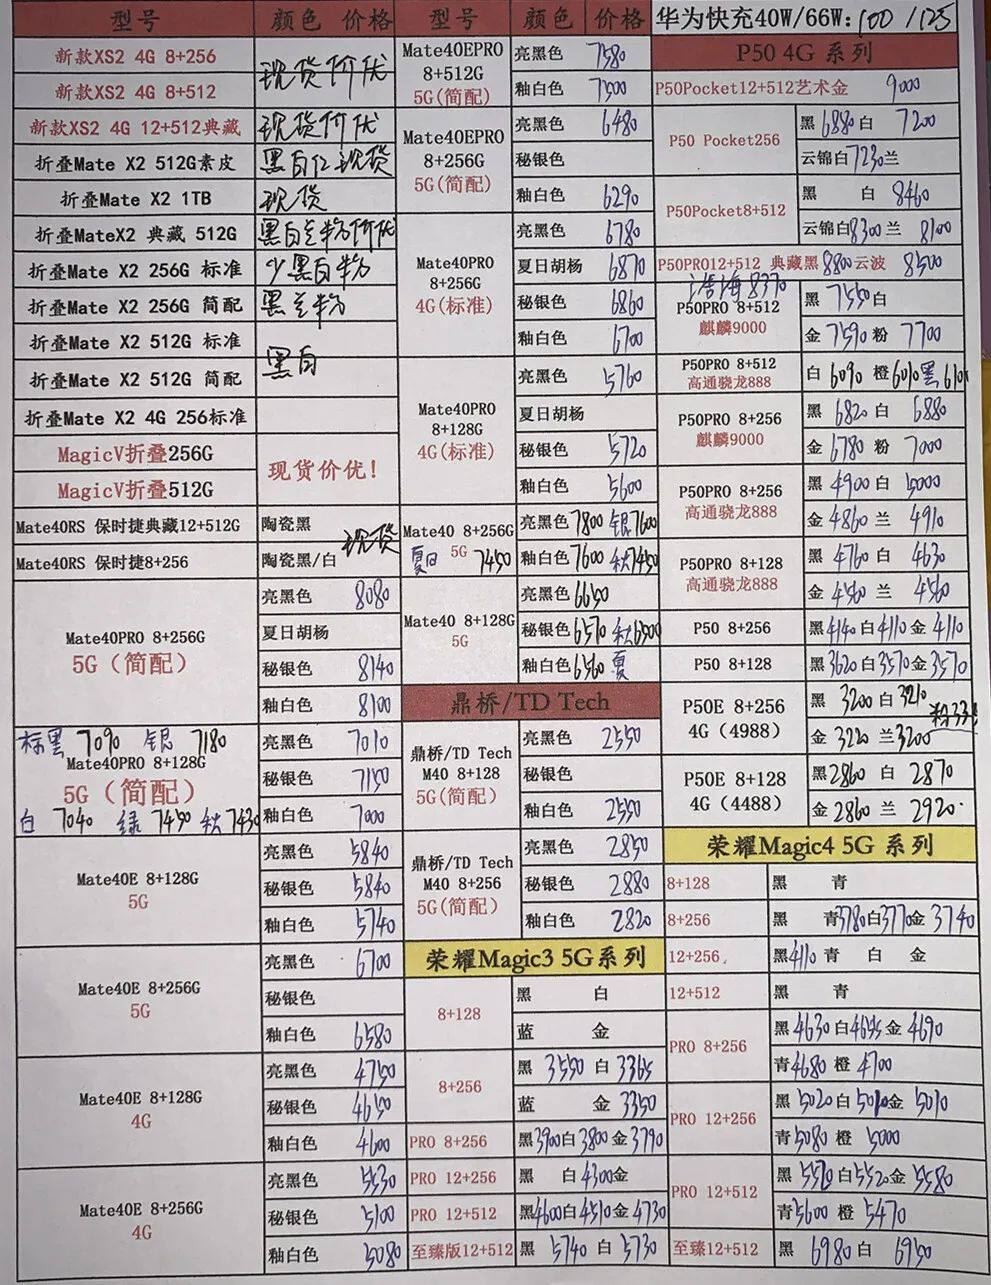 型号 颜色 价格
新款XS2 4G 8+256 现货价优
新款XS2 4G 8+512
新款XS2 4G 12+512典藏 现货价优
折叠Mate X2 512G素皮 黑白红现货
折叠Mate X2 1TB 现货
折叠MateX2 典藏 512G 黑白兰粉价优
折叠Mate X2 256G 标准 少黑白粉
折叠Mate X2 256G 简配 黑兰粉
折叠Mate X2 512G 标准 黑白
折叠Mate X2 512G 简配
折叠Mate X2 4G 256标准
MagicV折叠256G 现货价优!
MagicV折叠512G
Mate40RS 保时捷典藏12+512G 陶瓷黑 现货
Mate40RS 保时捷8+256 陶瓷黑/白
Mate40PRO 8+256G
5G(简配)
亮黑色 8080
夏日胡杨
秘银色 8140
釉白色 8100
标黑 7090 银 7180
Mate40PRO 8+128G
5G(简配)
白 7040 绿 7450 秋 7430
亮黑色 7010
秘银色 7150
釉白色 7000
Mate40E 8+128G
5G
亮黑色 5840
秘银色 5840
釉白色 5740
Mate40E 8+256G
5G
亮黑色 6700
秘银色
釉白色 6580
Mate40E 8+128G
4G
亮黑色 4750
秘银色 4650
釉白色 4600
Mate40E 8+256G
4G
亮黑色 5530
秘银色 5100
釉白色 5080
型号 颜色 价格
Mate40EPRO
8+512G
5G(简配)
亮黑色 7580
釉白色 7500
Mate40EPRO
8+256G
5G(简配)
亮黑色 6480
秘银色
釉白色 6290
Mate40PRO
8+256G
4G(标准)
亮黑色 6780
夏日胡杨 6870
秘银色 6860
釉白色 6700
Mate40PRO
8+128G
4G(标准)
亮黑色 5760
夏日胡杨
秘银色 5720
釉白色 5600
Mate40 8+256G
5G
夏日 7450
亮黑色 7800 银 7600
釉白色 7600 秋 7450
Mate40 8+128G
5G
亮黑色 6650
秘银色 6570 秋 6500
釉白色 6560 夏
鼎桥/TD Tech
鼎桥/TD Tech
M40 8+128
5G(简配)
亮黑色 2550
秘银色
釉白色 2550
鼎桥/TD Tech
M40 8+256
5G(简配)
亮黑色 2850
秘银色 2880
釉白色 2820
荣耀Magic3 5G系列
8+128 黑 白
蓝 金
8+256 黑 3550 白 3365
蓝 金 3350
PRO 8+256 黑3900白3800金3790
PRO 12+256 黑 白4300金
PRO 12+512 黑4600白4510金4730
至臻版12+512 黑 5740 白 5730
华为快充40W/66W: 100 /125
P50 4G 系列
P50Pocket12+512艺术金 9000
P50 Pocket256 黑 6880 白 7200
云锦白7230兰
P50Pocket8+512 黑 白 8460
云锦白8300兰 8100
P50PRO12+512 典藏黑 8800云波 8500
浩海 8370
P50PRO 8+512
麒麟9000
黑 7550白
金 7590 粉 7700
P50PRO 8+512
高通骁龙888
白 6090 橙 6010 黑
P50PRO 8+256
麒麟9000
黑 6820 白 6880
金 6780 粉 7000
P50PRO 8+256
高通骁龙888
黑 4900 白 5000
金 4860 兰 4910
P50PRO 8+128
高通骁龙888
黑 4760 白 4630
金 4560 兰 4560
P50 8+256 黑4140白4110金 4110
P50 8+128 黑3620白3570金3570
P50E 8+256
4G(4988)
黑 3200 白 3210 粉
金 3220 兰 3200
P50E 8+128
4G(4488)
黑2860 白 2870
金 2860 兰 2920
荣耀Magic4 5G 系列
8+128 黑 青
8+256 黑 青3780白3770金 3740
12+256 黑4110 青 白 金
12+512 黑 青
PRO 8+256 黑4630白4655金4690
青4680 橙 4700
PRO 12+256 黑 5020白5010金 5010
青5080 橙 5000
PRO 12+512 黑 5520白5520金5580
青5600 橙 5470
至臻12+512 黑 6980白 6950